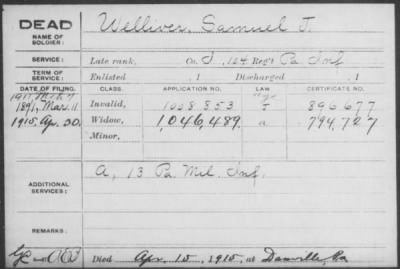 DEAD
NAME OF SOLDIER: Welliver, Samuel J.
SERVICE: Late rank, Co. I, 124 Reg't Pa Inf
TERM OF SERVICE: Enlisted , 1 Discharged , 1
DATE OF FILING. CLASS. APPLICATION NO. LAW. CERTIFICATE NO.
1891, Mar. 11 Invalid, 1008853 896677
1915, Apr. 30. Widow, 1,046,489. a. 794,727
Minor,
ADDITIONAL SERVICES: A, 13 Pa. Mil. Inf.
REMARKS:
Died Apr. 15, 1915, at Danville, Pa